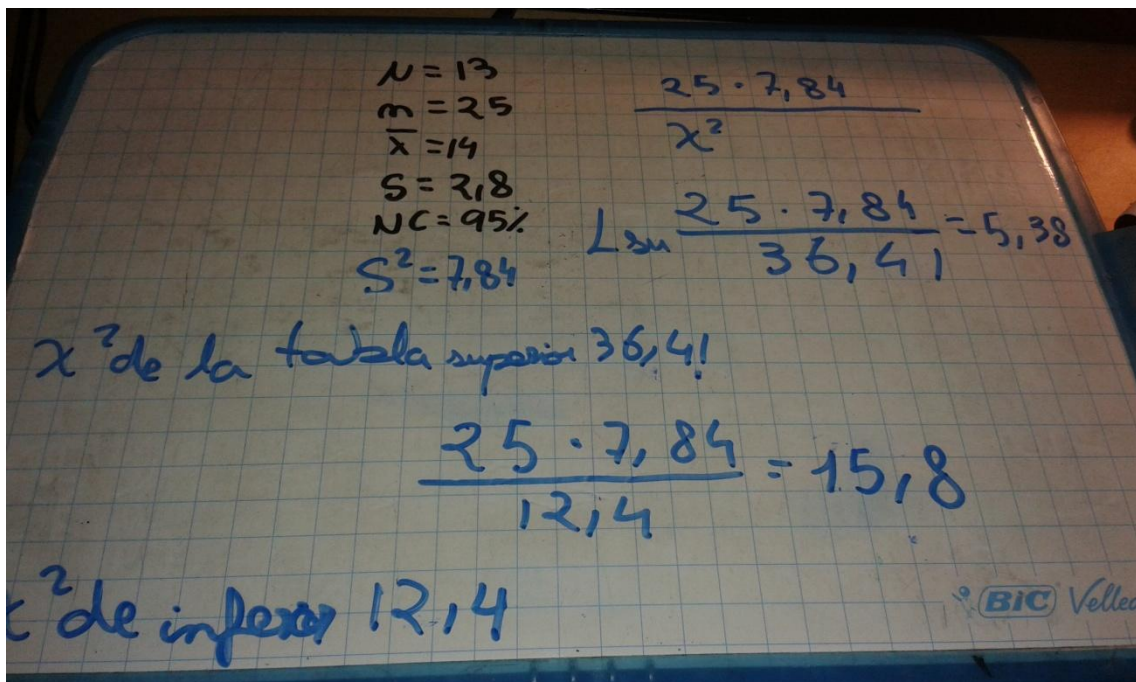 N = 13
n = 25
x̄ = 14
S = 2,8
NC = 95%
S² = 7,84
25 · 7,84
x²
Lsu 25 · 7,84 = 5,38
36,41
x² de la tabla superior 36,41
25 · 7,84 = 15,8
12,4
x² de inferior 12,4
BIC Velle